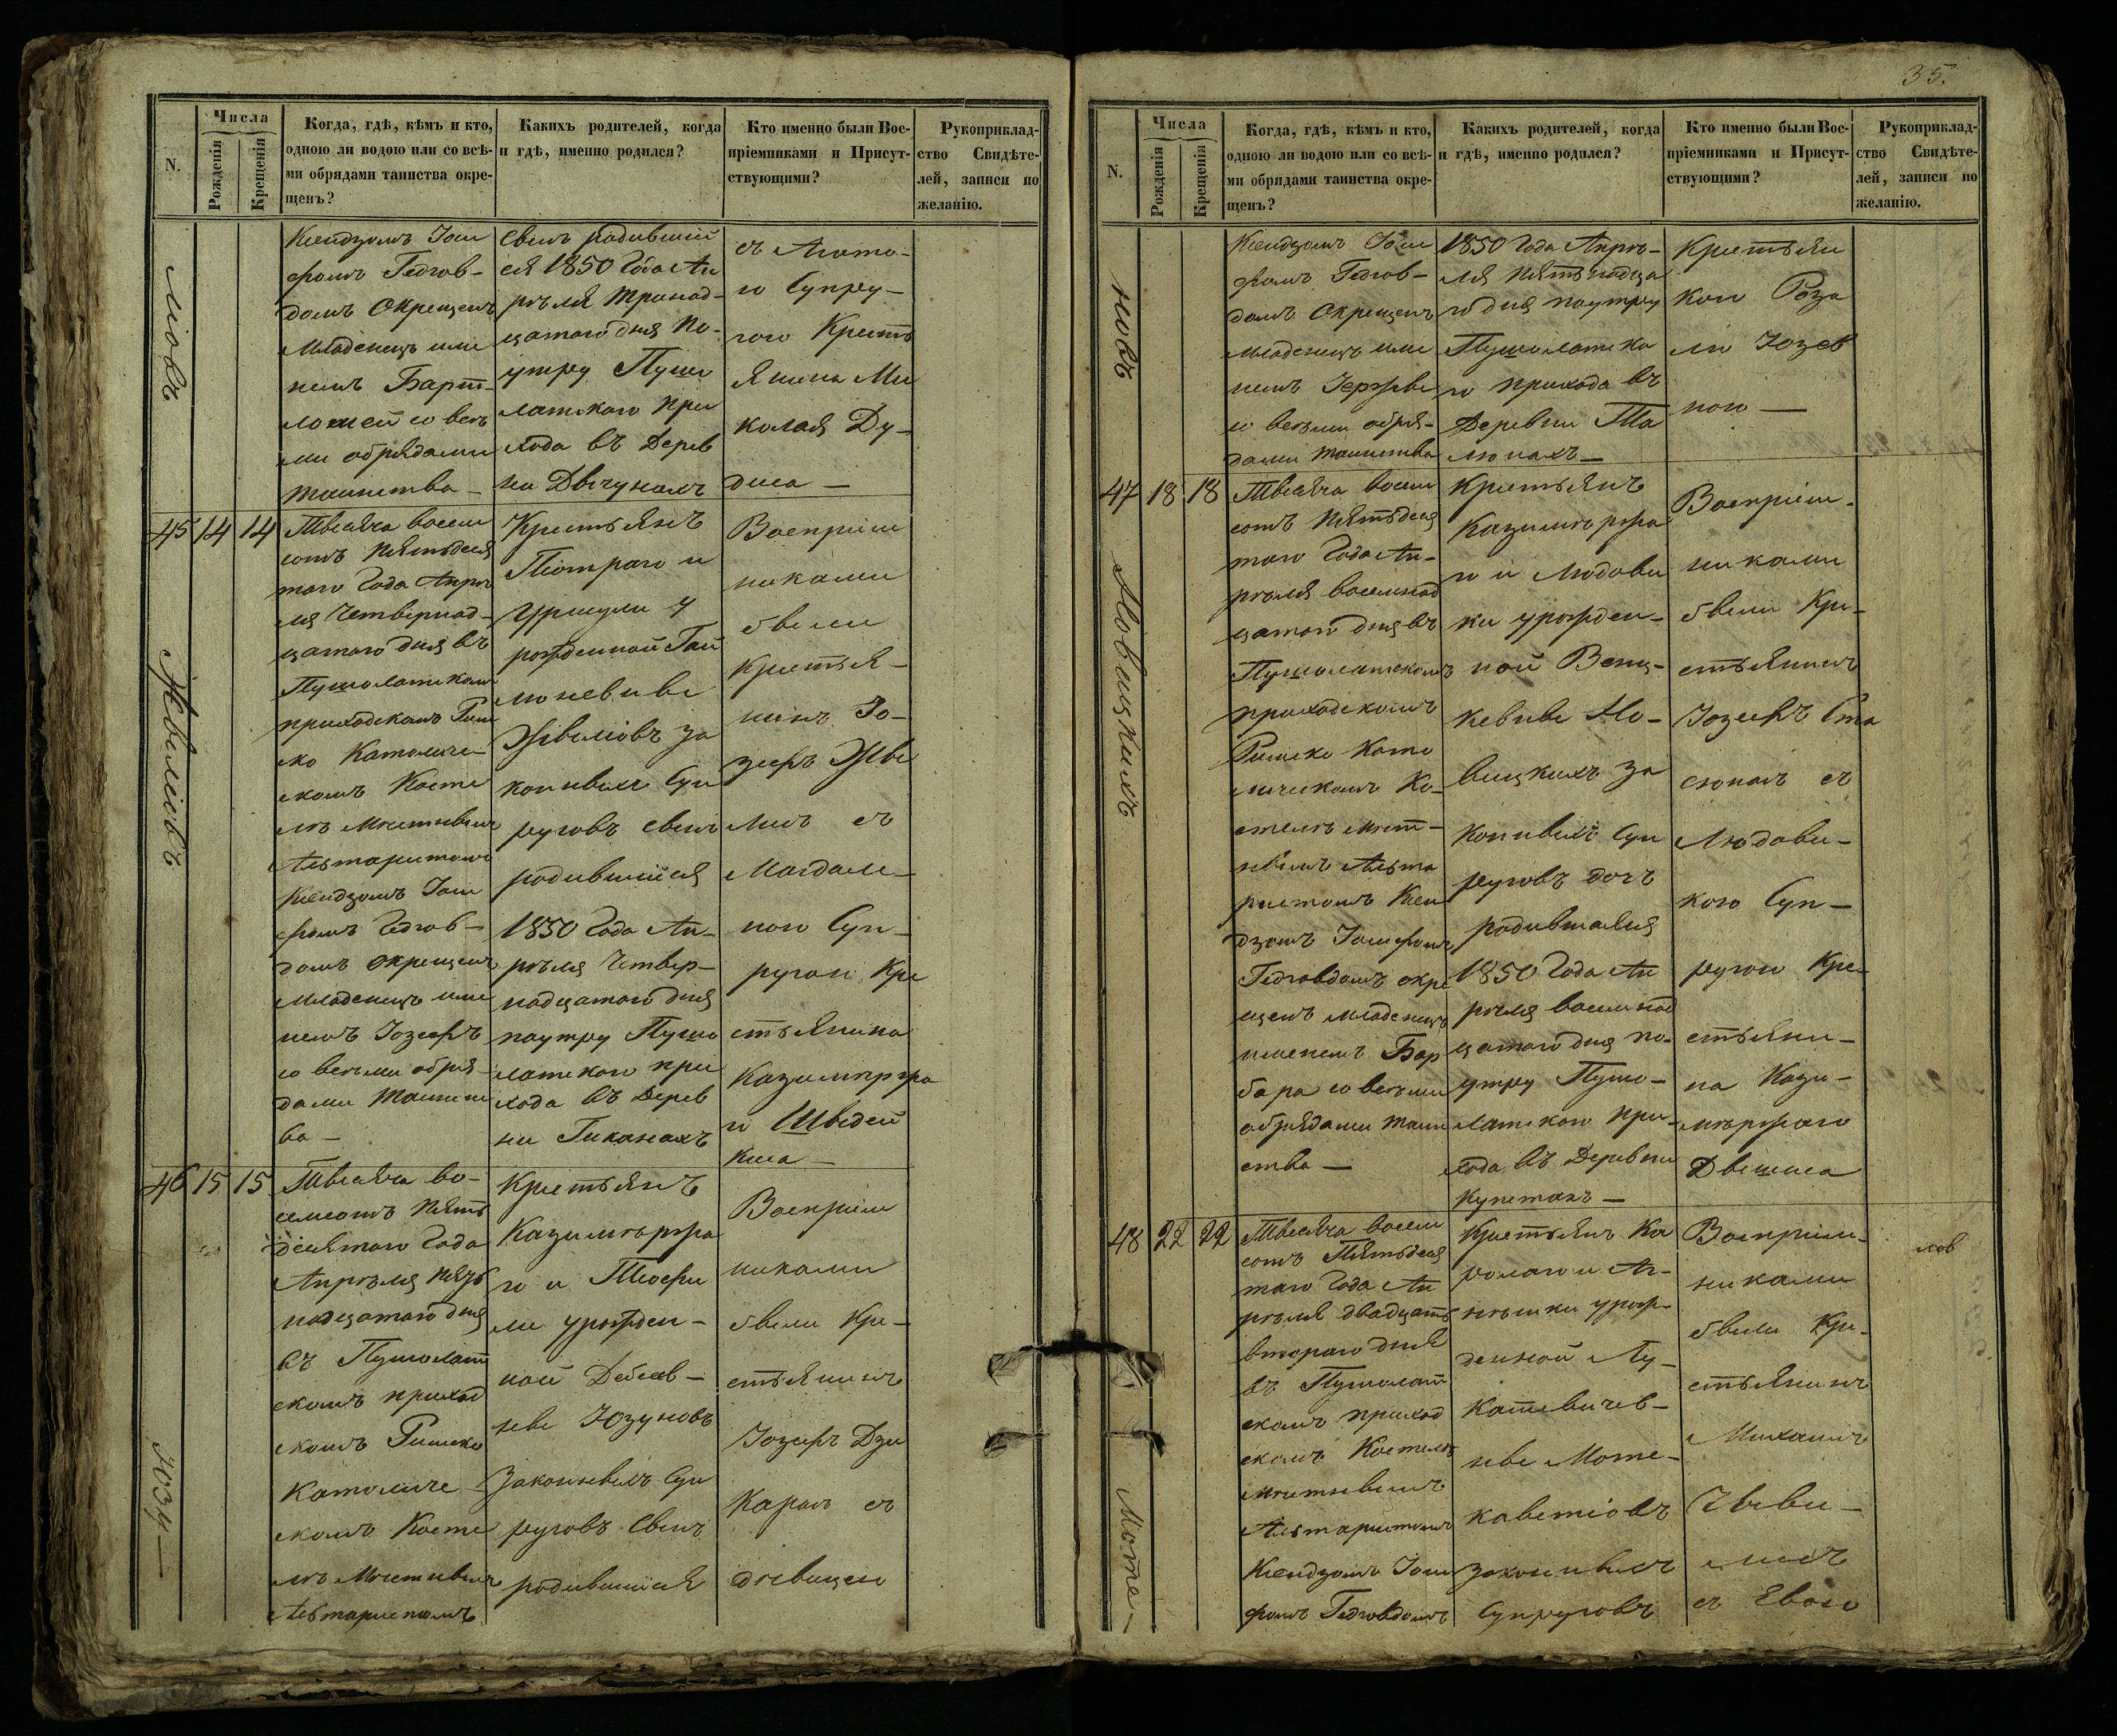 N.
Числа
Рожденія
Крещенія
Когда, гдѣ, кѣмъ и кто,
одною ли водою или со всѣ-
ми обрядами таинства окре-
щенъ?
Какихъ родителей, когда
и гдѣ, именно родился?
Кто именно были Вос-
пріемниками и Присут-
ствующими?
Рукоприклад-
ство Свидѣте-
лей, записи по
желанію.
Ксендзомъ Іоси
фомъ Гедгов-
домъ окрещенъ
младенецъ име
немъ
со всѣ
ми обрядами
таинства —
сынъ родивший
ся 1850 Года Ап
рѣля тринад-
цатаго дня по-
утру Пуши
латскаго при
хода въ Дерев
ни
съ Агато-
ю Супру-
гою Кресть
янина Ми
колая Ду-
диса —
45
14
14
Жвиліовъ
Тысяча восем
сотъ пятьдеся
таго Года Апрѣ
ля Четвернад-
цатаго дня въ
Пушолатскомъ
приходскомъ Рим
ско Католиче-
скомъ Косте
лѣ мѣстнымъ
Альтаристомъ
Ксендзомъ Іоси
фомъ Гедгов-
домъ окрещенъ
младенецъ име
немъ Іозефъ
со всѣми обря-
дами таинст
ва —
Крестьянъ
Піотраго и
Уршули у
рожденной Гай
люневны
Жвиліовъ за
конныхъ Суп
руговъ сынъ
родившийся
1850 Года Ап-
рѣля Четвер-
надцатаго дня
поутру Пушо
латскаго при
хода въ Дерев
ни Гиканахъ
Воспріем
никами
были
Крестья-
нинъ Іо-
зефъ Жви
лисъ съ
Магдале-
ною Суп-
ругою Кре
стьянина
Казимѣржа
го
киса —
46
15
15
Юзу —
Тысяча во-
семсотъ пять
десятаго Года
Апрѣля пят
надцатаго дня
въ Пушолат
скомъ приход
скомъ Римско
Католиче
скомъ Косте
лѣ мѣстнымъ
Альтаристомъ
Крестьянъ
Казимѣржа
го и Теофи
ли урожден-
ной
ны Юзуновъ
Законныхъ Суп
руговъ сынъ
родившийся
Воспріем
никами
были Кре-
стьянинъ
Іозефъ Дзи
каралъ съ
дѣвицею
35.
N.
Числа
Рожденія
Крещенія
Когда, гдѣ, кѣмъ и кто,
одною ли водою или со всѣ-
ми обрядами таинства окре-
щенъ?
Какихъ родителей, когда
и гдѣ, именно родился?
Кто именно были Вос-
пріемниками и Присут-
ствующими?
Рукоприклад-
ство Свидѣте-
лей, записи по
желанію.
новъ
Ксендзомъ Іоси
фомъ Гедгов-
домъ окрещенъ
младенецъ име
немъ Іержы
со всѣми обря-
дами таинства
1850 Года Апрѣ-
ля пятнадца
го дня поутру
Пушолатска
го прихода въ
Деревни
Крестьян
кою Роза
лію Юзев
ною —
47
18
18
Новицкихъ
Тысяча восем
сотъ пятьдеся
таго Года Ап-
рѣля восемнад
цатаго дня въ
Пушолатскомъ
приходскомъ
Римско Като
лическомъ Ко-
стелѣ мѣст-
нымъ Альта
ристомъ Ксен
дзомъ Іосифомъ
Гедговдомъ окре
щенъ младенецъ
именемъ Бар
бара со всѣми
обрядами таин
ства —
Крестьянъ
Казимѣржа
го и Людови
ки урожден-
ной Венц-
кевны Но-
вицкихъ За
конныхъ Суп
руговъ дочь
родившаяся
1850 Года Ап
рѣля восемнад
цатаго дня по-
утру Пушо-
латскаго при-
хода въ Деревни
Купетахъ —
Воспріем-
никами
были Кре-
стьянинъ
Іозефъ Ста
сюналъ съ
Людови-
кою Суп-
ругою Кре-
стьяни-
на Кази-
мѣржаго
48
22
22
Моте —
Тысяча восем
сотъ Пятьдеся
таго Года Ап
рѣля двадцать
втораго дня
въ Пушолат
скомъ приход
скомъ Костелѣ
мѣстнымъ
Альтаристомъ
Ксендзомъ Іоси
фомъ Гедговдомъ
Крестьянъ Ка
ролаго и Аг-
нѣшки урож-
денной Лу-
кашевичев-
ны Моте-
Законныхъ
Супруговъ
Воспріем-
никами
были Кре-
стьянинъ
Михаилъ
съ Евою